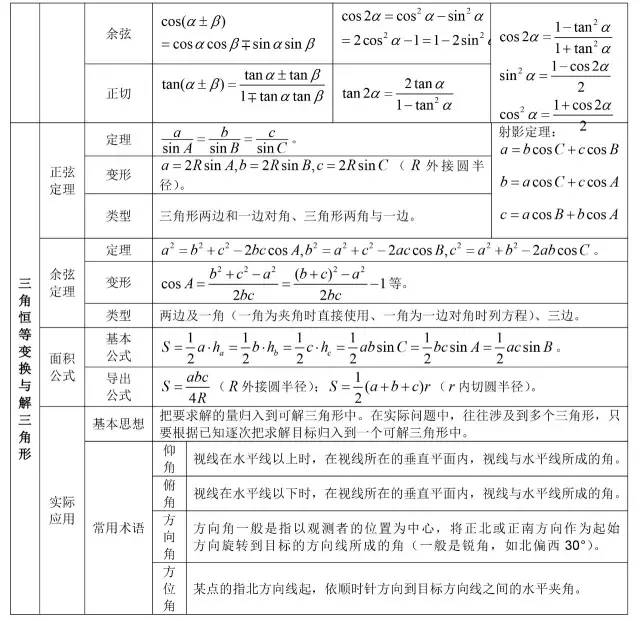 余弦
cos(α±β)
=cosαcosβ∓sinαsinβ
cos2α=cos²α−sin²α
=2cos²α−1=1−2sin²α
cos2α=(1−tan²α)/(1+tan²α)
sin²α=(1−cos2α)/2
cos²α=(1+cos2α)/2
正切
tan(α±β)=(tanα±tanβ)/(1∓tanαtanβ)
tan2α=2tanα/(1−tan²α)
三角恒等变换与解三角形
正弦定理
定理
a/sinA=b/sinB=c/sinC。
射影定理：
a=bcosC+ccosB
b=acosC+ccosA
c=acosB+bcosA
变形
a=2RsinA,b=2RsinB,c=2RsinC（R外接圆半
径）。
类型
三角形两边和一边对角、三角形两角与一边。
余弦定理
定理
a²=b²+c²−2bccosA,b²=a²+c²−2accosB,c²=a²+b²−2abcosC。
变形
cosA=(b²+c²−a²)/2bc=((b+c)²−a²)/2bc−1等。
类型
两边及一角（一角为夹角时直接使用、一角为一边对角时列方程）、三边。
面积公式
基本公式
S=1/2a·hₐ=1/2b·h_b=1/2c·h_c=1/2absinC=1/2bcsinA=1/2acsinB。
导出公式
S=abc/4R（R外接圆半径）；S=1/2(a+b+c)r（r内切圆半径）。
实际应用
基本思想
把要求解的量归入到可解三角形中。在实际问题中，往往涉及到多个三角形，只
要根据已知逐次把求解目标归入到一个可解三角形中。
常用术语
仰角
视线在水平线以上时，在视线所在的垂直平面内，视线与水平线所成的角。
俯角
视线在水平线以下时，在视线所在的垂直平面内，视线与水平线所成的角。
方向角
方向角一般是指以观测者的位置为中心，将正北或正南方向作为起始
方向旋转到目标的方向线所成的角（一般是锐角，如北偏西30°）。
方位角
某点的指北方向线起，依顺时针方向到目标方向线之间的水平夹角。